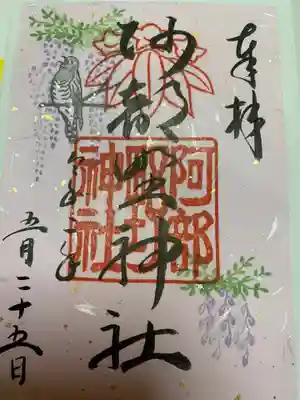 奉拝
阿部野神社
五月二十五日
阿部
神社